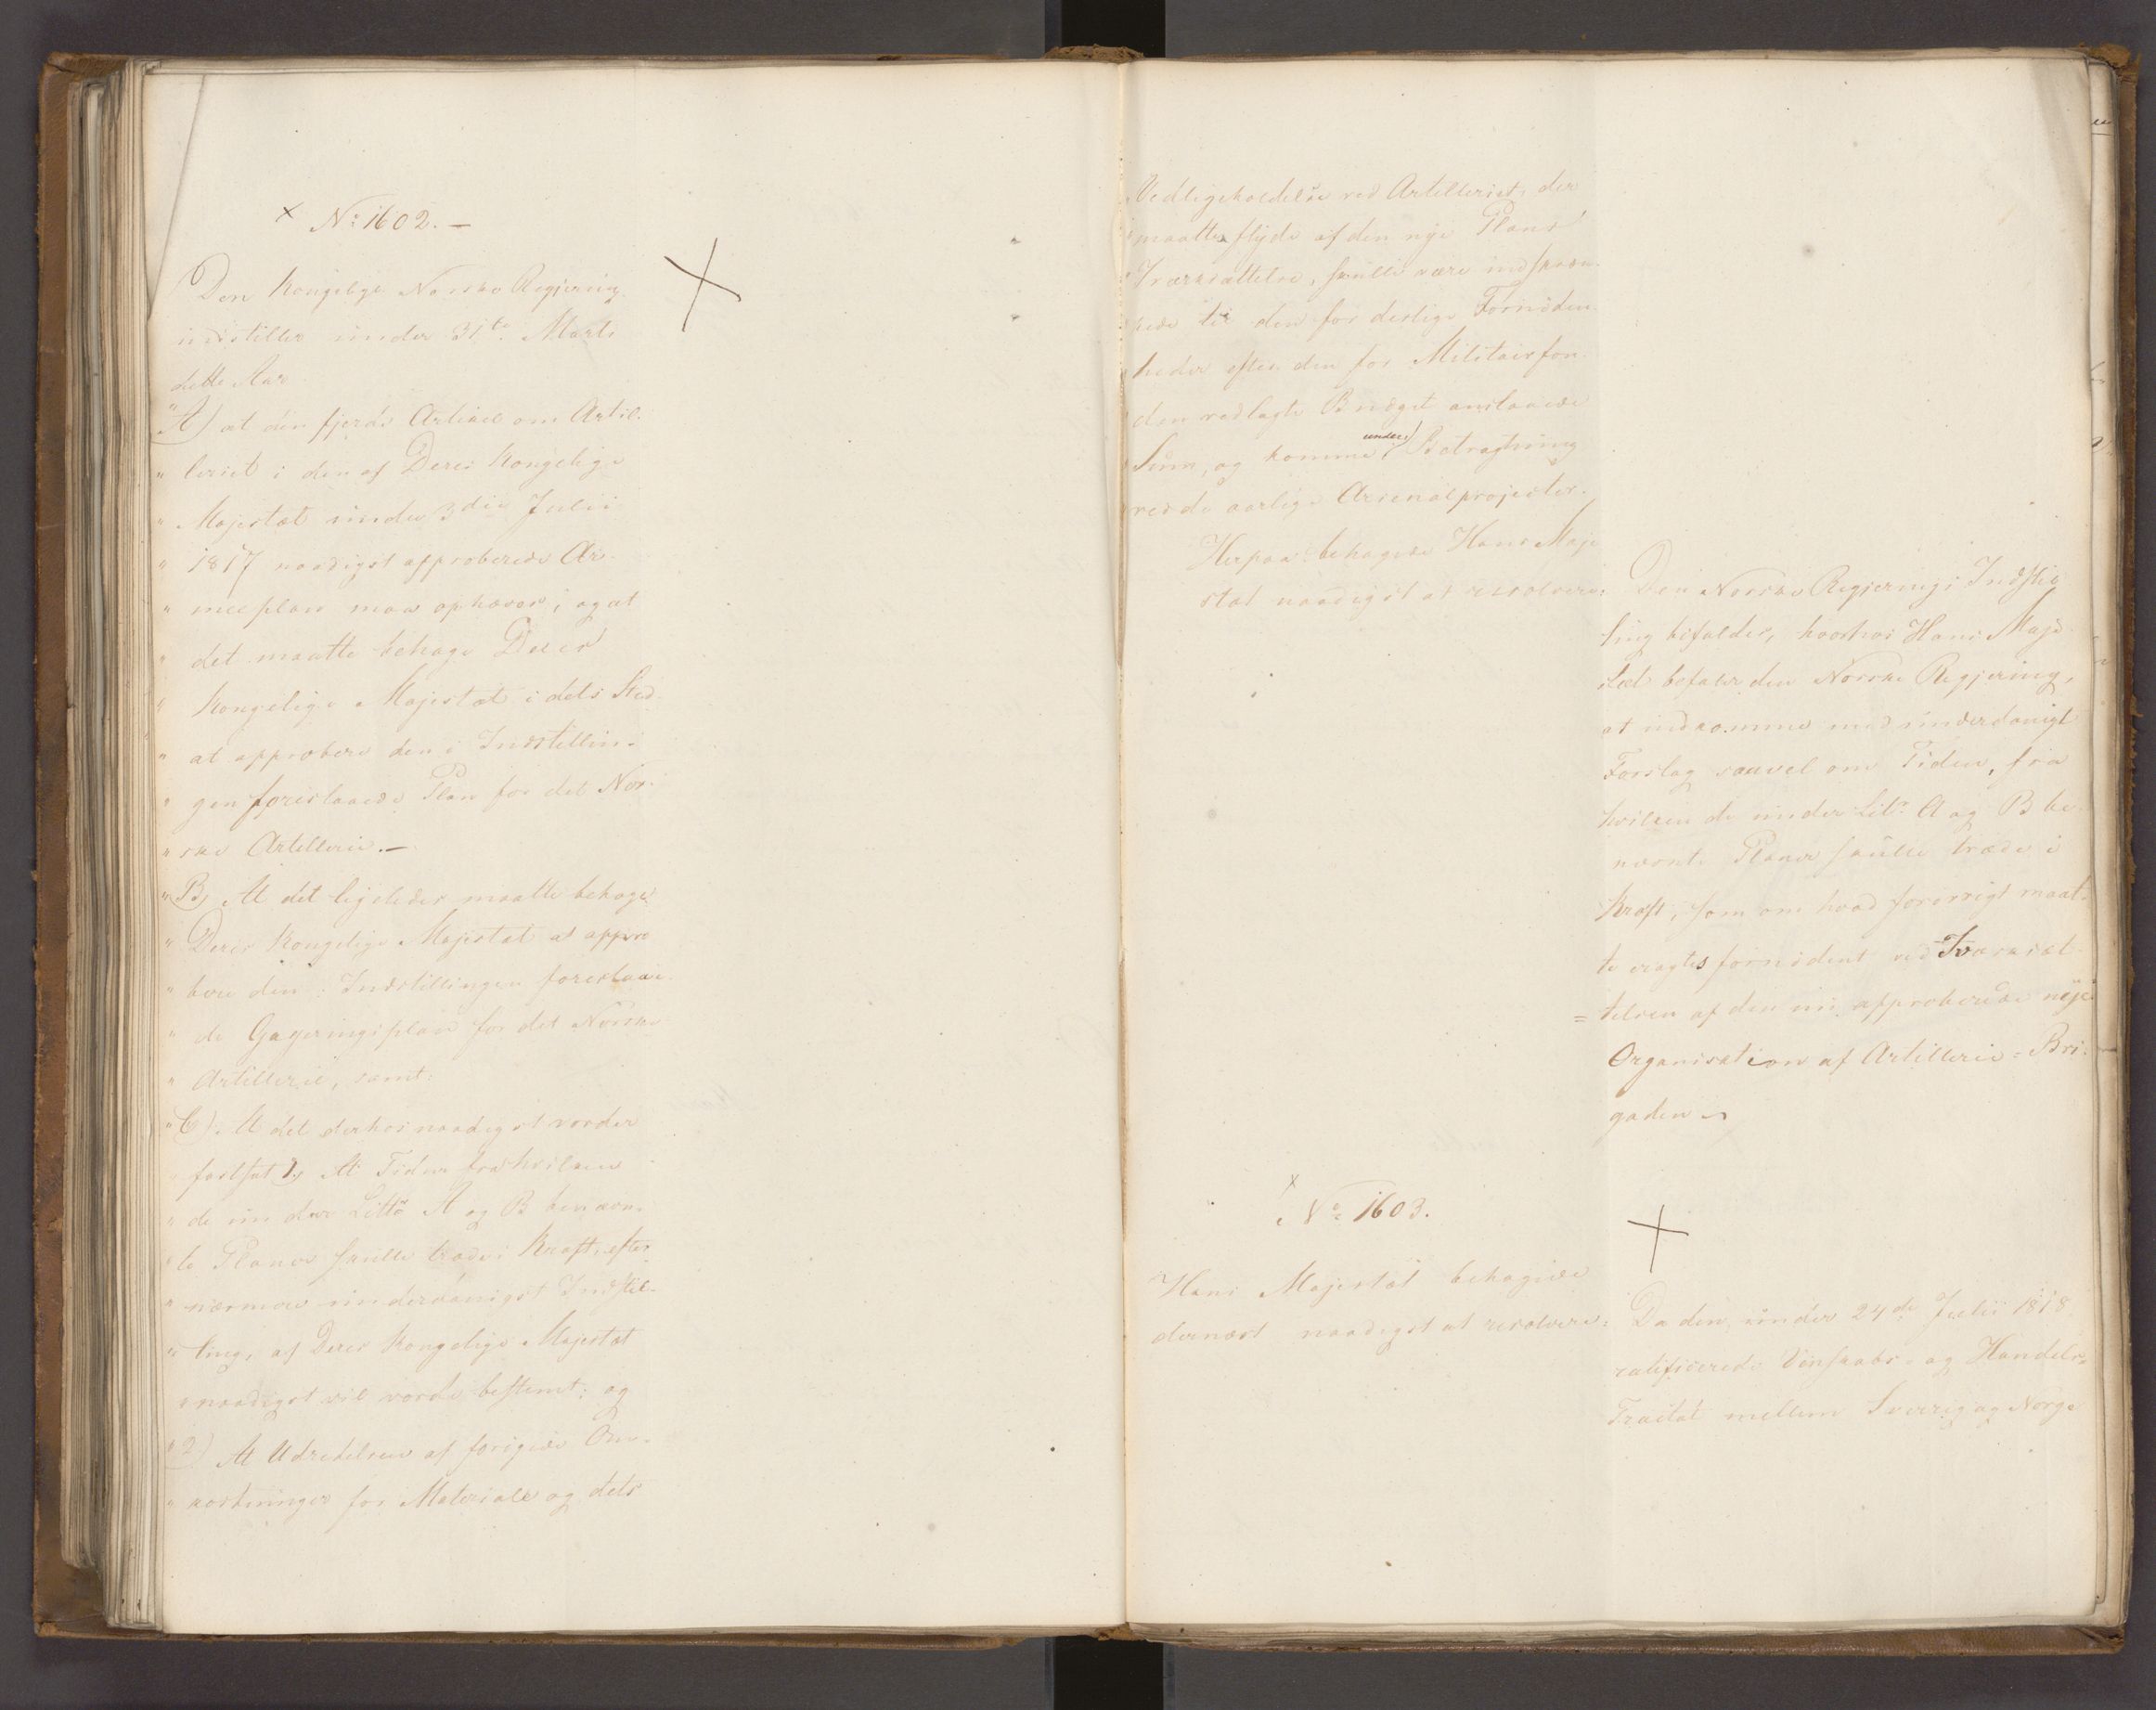 × No: 1602. –
Den Kongelige Norske Regjering
indstiller under 31te. Marts
dette Aar
"A) at den fjerde Artikel om Artil-
" leriet i den af Deres Kongelige
" Majestæt under 3die Julii
" 1817 naadigst approberede Ar-
" meeplan maa ophæves, og at
" det maatte behage Deres
" Kongelige Majestæt i dets Sted
" at approbere den i Indstillin-
" gen foreslaaede Plan for det Nor-
" ske Artillerie. –
"B, At det ligeledes maatte behage
" Deres Kongelige Majestæt at appro
" bere den i Indstillingen foreslaae-
" de Gageringsplan for det Norske
" Artillerie, samt.
"C) At det derhos naadigst vorder
" fastsat 1, At Tiden fra hvilken
" de under Littr A og B benævn-
" te Planer skulle træde i Kraft, efter
" nærmere underdanigst Indstil-
" ling, af Deres Kongelige Majestæt
" naadigst vil vorde bestemt; og
"2) At Udredelsen af forøgede Om-
" kostninger for Materiale og dets
" Vedligeholdelse ved Artilleriet, der
" maatte flyde af den nye Plans
" Iværksættelse, skulle være indskræn-
" kede til den for deslige Fornøden-
" heder efter den for Militairfon-
" den vedlagte Budget anslaaede
" Sum, og komme under Betragtning
" ved de aarlige Arsenalprojecter.
Herpaa behagede Hans Maje
stæt naadigst at resolvere:
Den Norske Regjerings Indstil
ling bifaldes, hvorhos Hans Maje
stæt befaler den Norske Regjering,
at indkomme med underdanigt
Forslag saavel om Tiden, fra
hvilken de under Litr. A og B be-
nævnte Planer skulle træde i
Kraft, som om hvad forøvrigt maat-
te eragtes fornødent ved Iværksæt-
= telsen af den nu approberede nye
Organisation af Artillerie-Bri-
gaden.
× No: 1603.
Hans Majestæt behagede
dernæst naadigst at resolvere:
Da den under 24de Julii 1818
ratificerede Venskabs- og Handels-
Tractat mellem Sverig og Norge